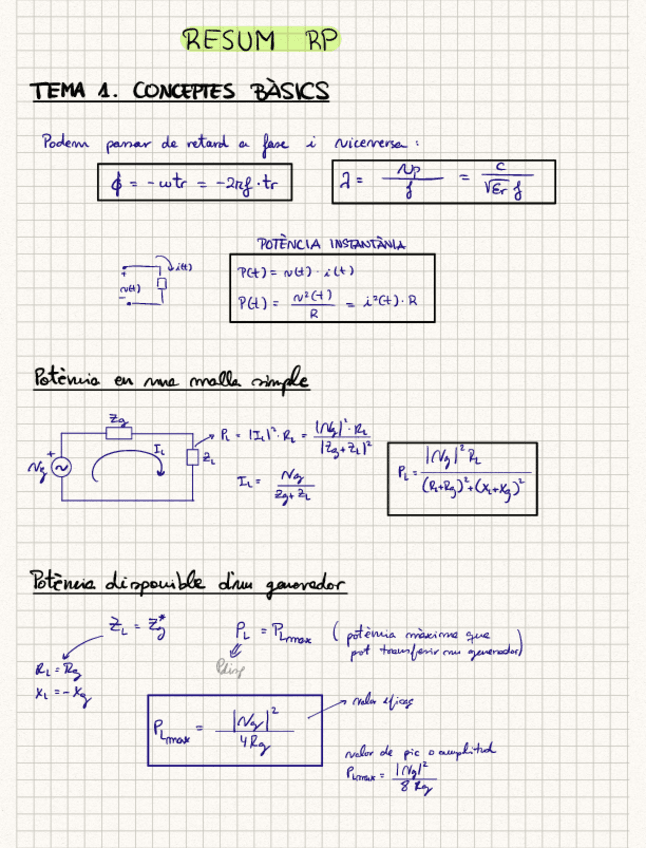 RESUM RP
TEMA 1. CONCEPTES BÀSICS
Podem passar de retard a fase i viceversa:
ϕ = -ωtr = -2πf·tr
λ = vp / f = c / √εr f
POTÈNCIA INSTANTÀNIA
i(t)
+
v(t)
-
P(t) = v(t) · i(t)
P(t) = v²(t) / R = i²(t) · R
Potència en una malla simple
Zg
+
Vg
IL
ZL
PL = |IL|² · RL = |Vg|² · RL / |Zg+ZL|²
IL = Vg / Zg+ZL
PL = |Vg|² RL / (RL+Rg)²+(XL+Xg)²
Potència disponible d'un generador
ZL = Zg*
RL = Rg
XL = -Xg
PL = PLmax (potència màxima que
pot transferir un generador)
Pdisp
PLmax = |Vg|² / 4Rg
valor eficaç
valor de pic o amplitud
PLmax = |Vg|² / 8 Rg